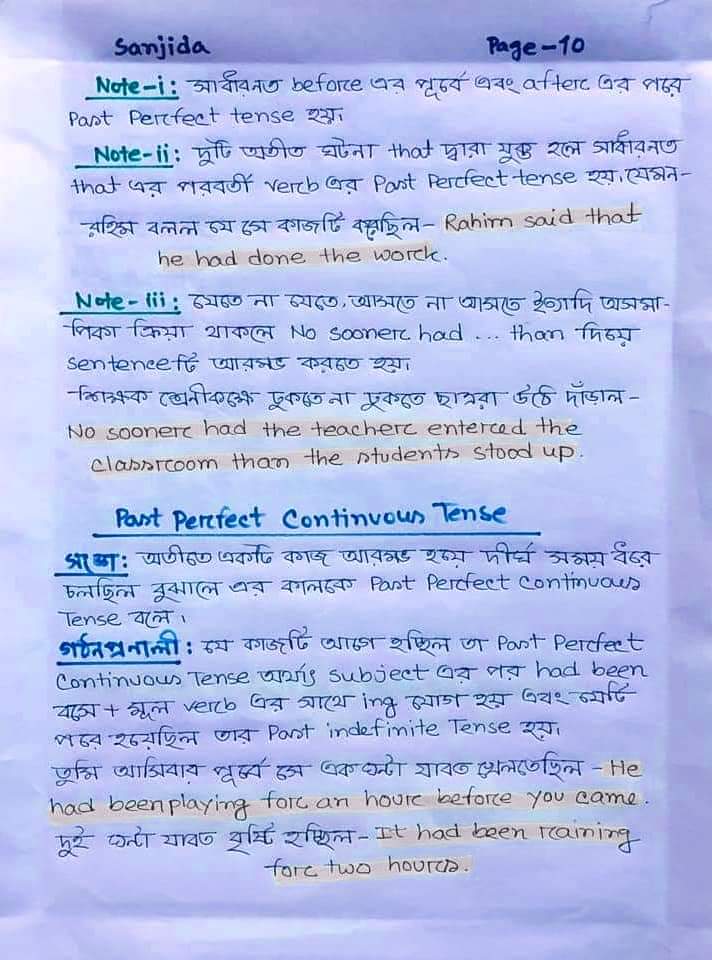 Sanjida Page-10
Note-i: সাধারনত before এর পূর্বে এবং after এর পরে
Past Perfect tense হয়।
Note-ii: দুটি অতীত ঘটনা that দ্বারা যুক্ত হলে সাধারনত
that এর পরবর্তী verb এর Past Perfect tense হয়, যেমন-
রহিম বলল যে সে কাজটি করেছিল- Rahim said that
he had done the work.
Note-iii: যেতে না যেতে, আসতে না আসতে ইত্যাদি অসমা-
পিকা ক্রিয়া থাকলে No sooner had ... than দিয়ে
sentenceটি আরম্ভ করতে হয়।
শিক্ষক শ্রেনীকক্ষে ঢুকতে না ঢুকতে ছাত্ররা উঠে দাঁড়াল-
No sooner had the teacher entered the
classroom than the students stood up.
Past Perfect Continuous Tense
সংজ্ঞা: অতীতে একটি কাজ আরম্ভ হয়ে দীর্ঘ সময় ধরে
চলছিল বুঝালে এর কালকে Past Perfect Continuous
Tense বলে।
গঠনপ্রনালী: যে কাজটি আগে হচ্ছিল তা Past Perfect
Continuous Tense অর্থাৎ subject এর পর had been
বসে + মূল verb এর সাথে ing যোগ হয় এবং যেটি
পরে হয়েছিল তার Past indefinite Tense হয়।
তুমি আসিবার পূর্বে সে এক ঘন্টা যাবত খেলতেছিল - He
had been playing for an hour before you came.
দুই ঘন্টা যাবত বৃষ্টি হচ্ছিল- It had been raining
for two hours.